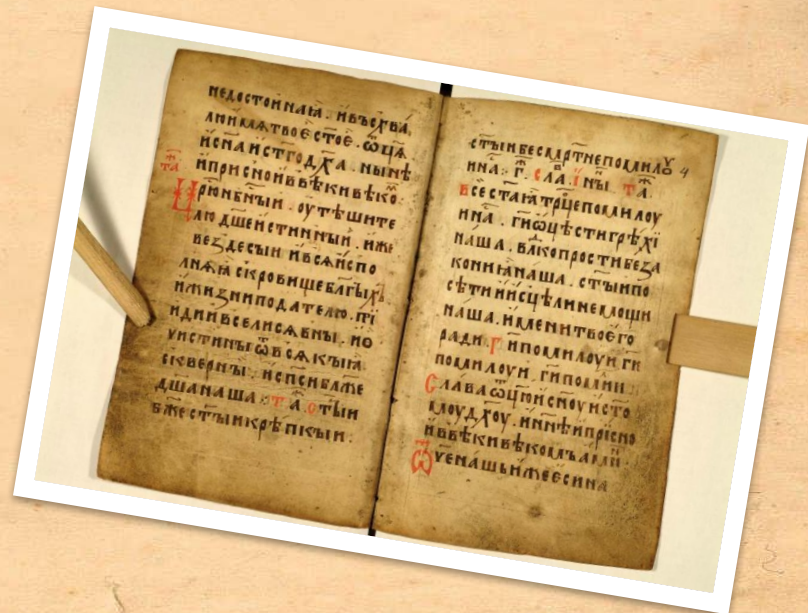 недостоинаꙗ. ивъсхва
исн҃аистг҃од҃ха. нын҄ѣ
иприсноивв҄ѣкив҄ѣко҃
Ц҃рюнбн҃ыи. оут҄ѣшите
лю дш҃еистинныи. иже
вездесыи ивсѧиспо
лнѧꙗ скровищеблг҃ыхъ
ижизниподателю. пі
идиивселисѧвны. ио
уистиныѿвсѧкыꙗ
сквєрны. испс҃иблж҃е
дш҃анаша. т҃а. ст҃ыи
бж҃ест҃ыикр҄ѣпкыи:
ст҃ыибесмр҃тнепомилꙋ 4
ина: г҃. сла҃. ін҃ы т҃а.
всест҃аꙗтрц҃епомилоу
ина. ги҃ѡц҄ѣстигр҄ѣхі
наша. влк҃опростибеза
кониꙗнаша. ст҃ыипо
с҄ѣтииисц҄ѣлинемощи
наша. именитвоєго
ради. Г҃ипомилоуи ги҃
помилоуи. ги҃помии
Славаѡц҃юисн҃оуисто
моудх҃оу. инн҃҄ѣипрісно
ивв҄ѣкив҄ѣкомъами
Ѿченашьиже